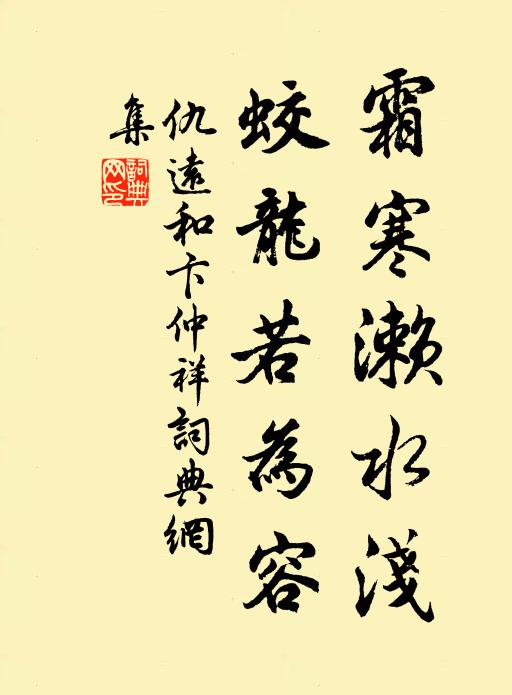 霜寒濑水淺
蛟龍若為容
仇遠和卞仲祥詞典網
集
詞典
网印